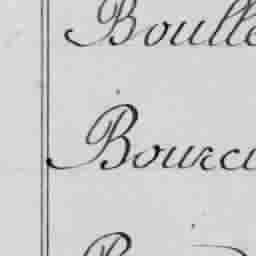 Boulle
Bourci